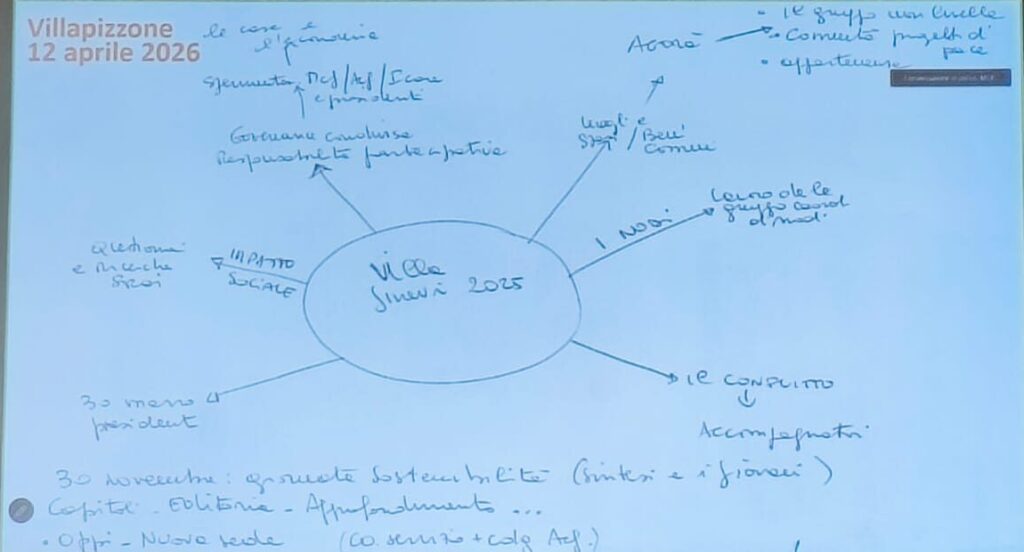 Villapizzone
12 aprile 2026
le case e
l'economia
Sperimentaz. Mcf/Acf/I care
e presidenti
Governance condivisa
Responsabilità partecipativa
Agorà
• Il gruppo
• Comunità progetti di
pace
• appartenenze
luoghi e
spazi / Beni
Comuni
I NODI
Lavoro delle
gruppo coord
di nodi
questionari
e ricerche
IMPATTO
SOCIALE
Villa
2025
30 marzo
presidenti
IL CONFLITTO
Accompagnatori
30 novembre: giornata Sostenibilità (Sintesi e i giovani)
Capitoli - Editoria - Approfondimento ...
• Oppi - Nuova sede (co. servizio + cdg Acf.)